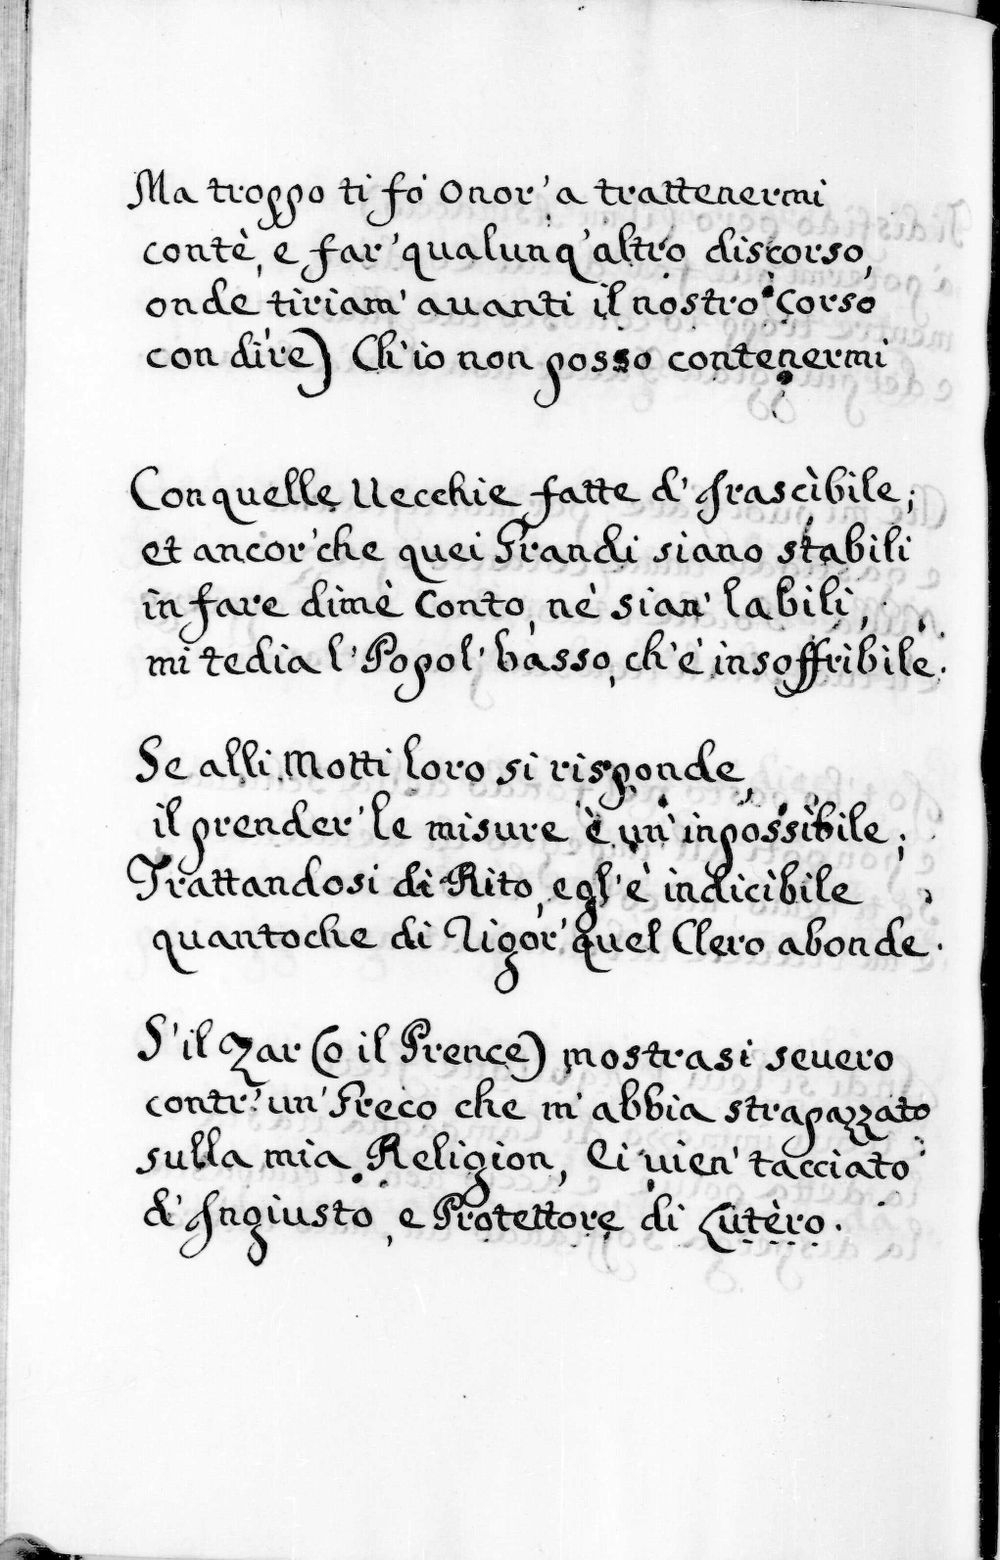 Ma troppo ti fò onor' a trattenermi
contè, e far' qualunq' altro discorso,
onde tiriam' auanti il nostro Corso
con dire) Ch'io non posso contenermi
Con quelle Uecchie fatte d' Irascìbile;
et ancor' che quei Grandi siano stabili
in fare dimè Conto, nè sian' labili,
mi tedia l' Popol' basso, ch'è insoffribile.
Se alli Motti loro si risponde,
il prender' le misure è un' inpossìbile;
Trattandosi di Rito, egl'è indicìbile
quantoche di Rigor' quel Clero abonde.
S'il Zar (o il Prence) mostrasi seuero
contr' un' Greco che m' abbia strapazzato
sulla mia Religion, li uien' tacciato
d' Ingiusto, e Protettore di Lutèro.